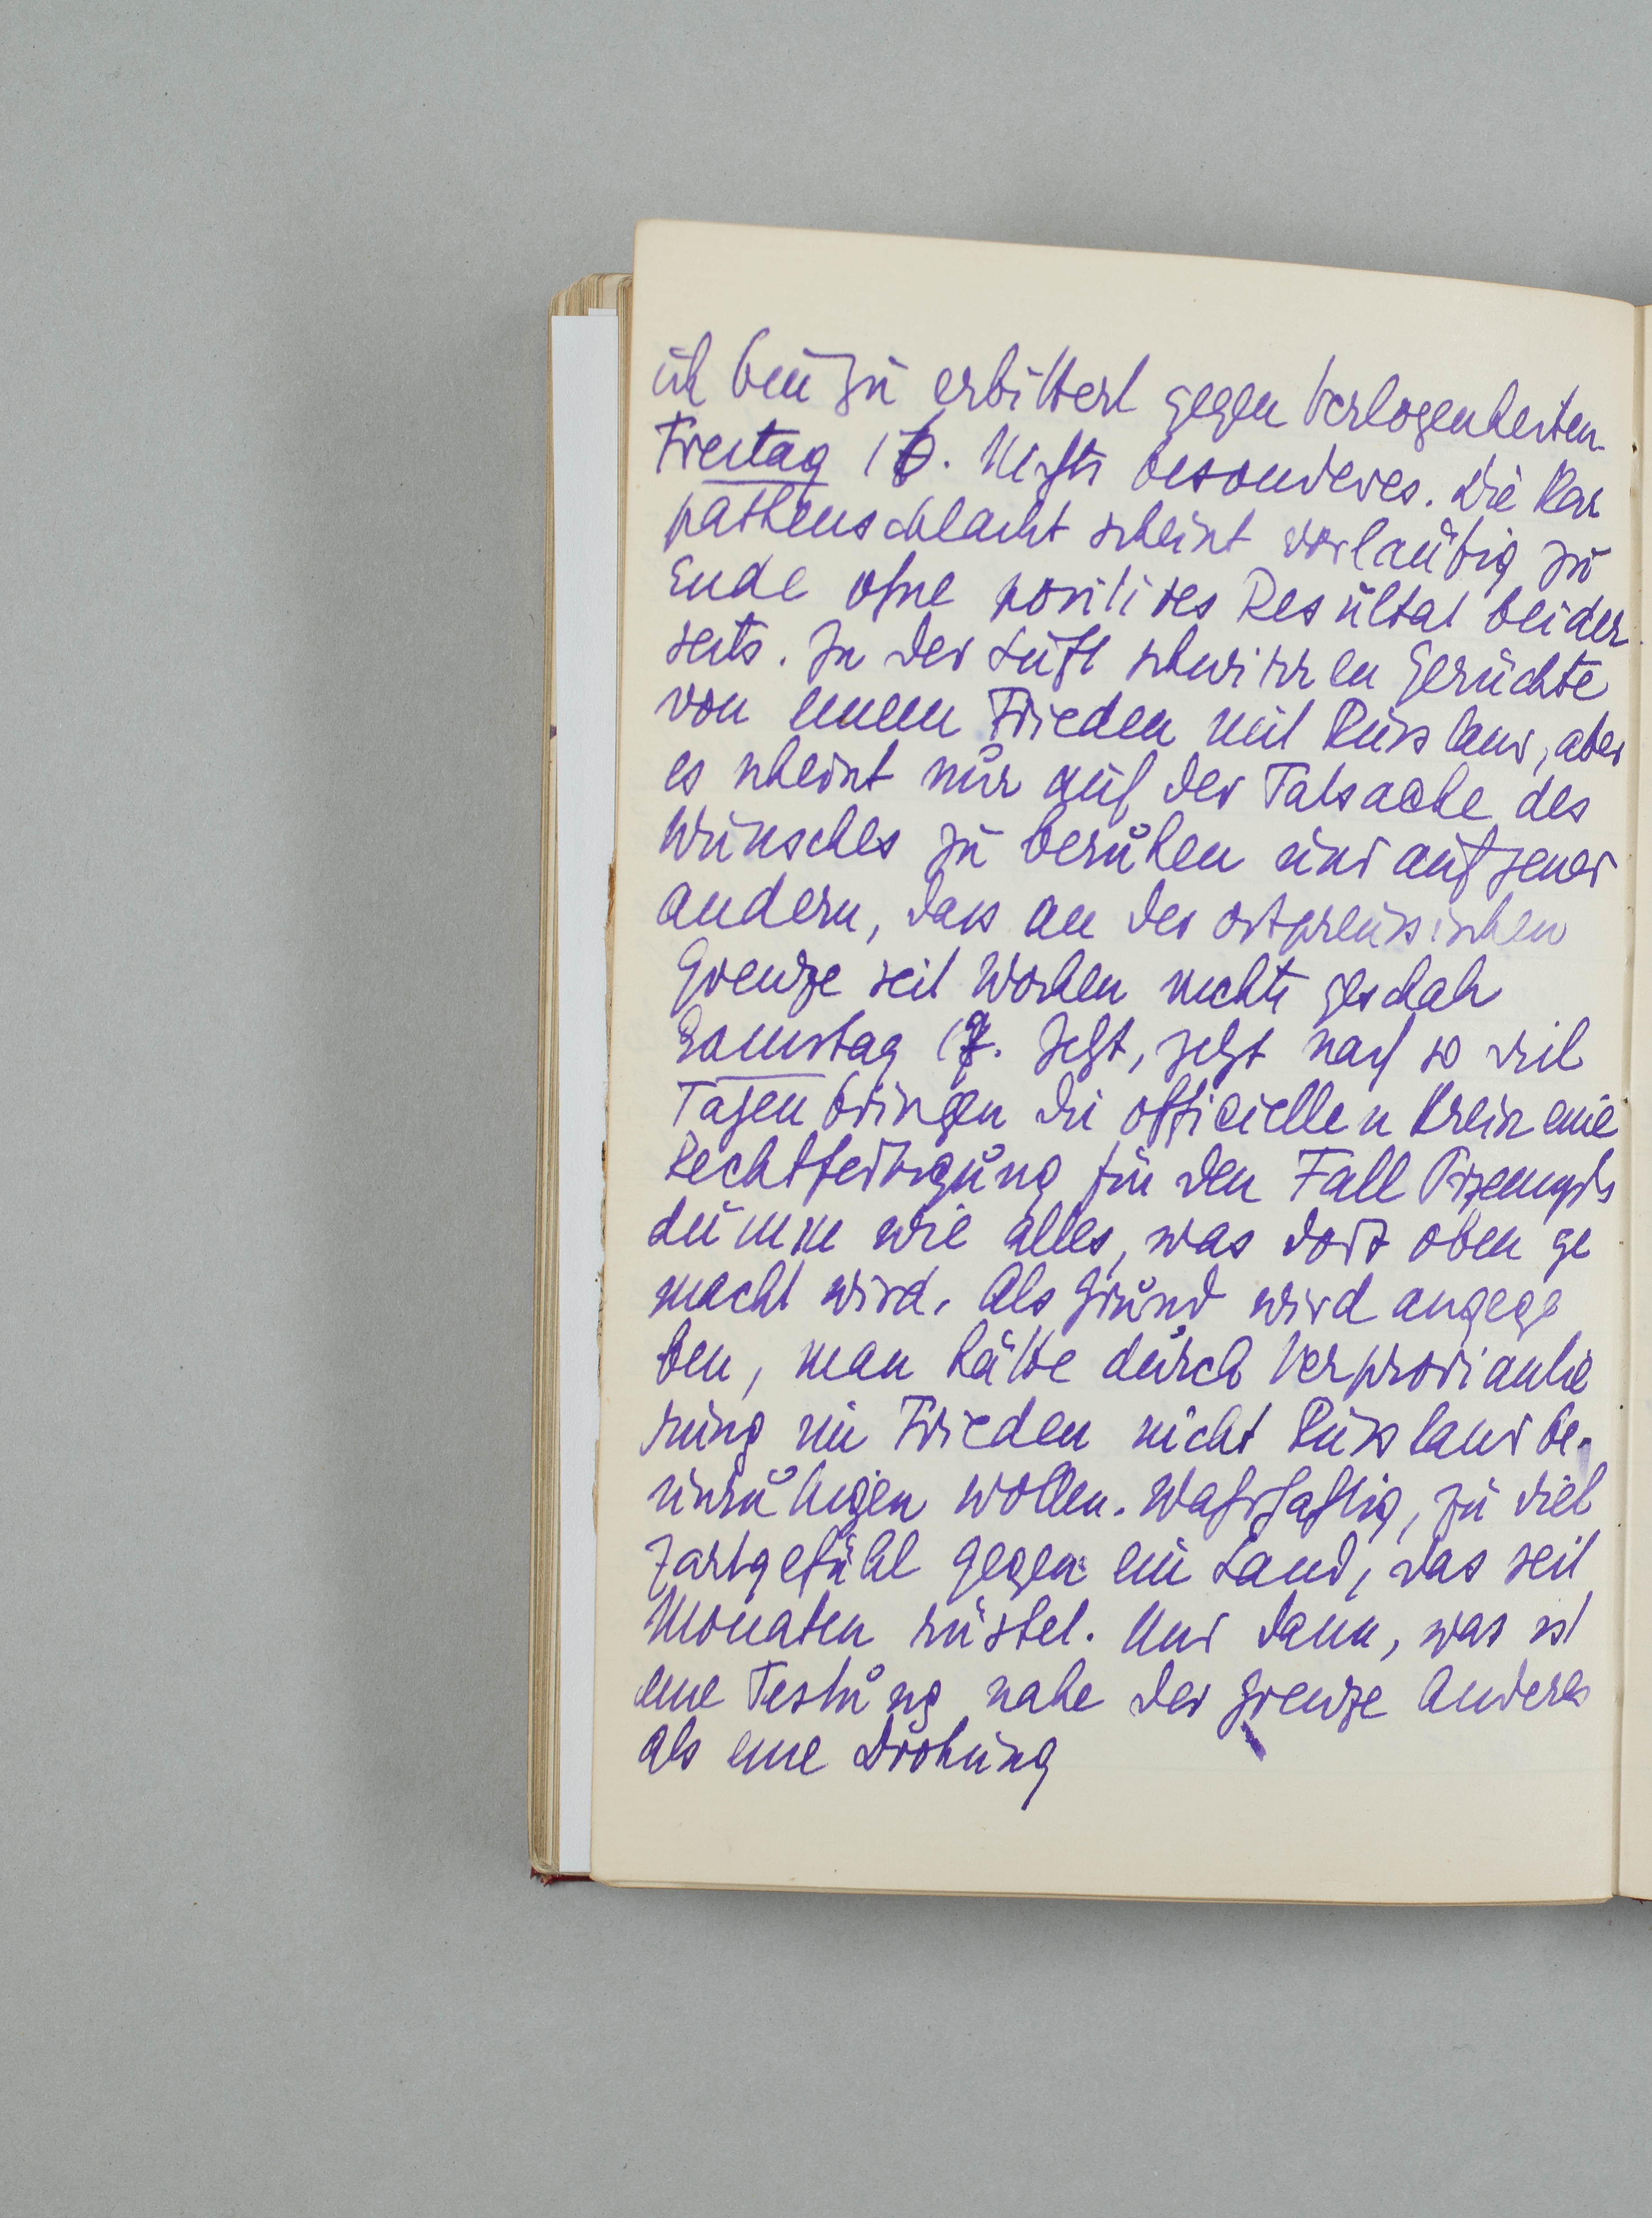 ich bin zu erbittert gegen Verlogenheiten.
Freitag 16. Nichts besonderes. Die Kar
pathenschlacht scheint vorläufig zu
Ende ohne positives Resultat beider
seits. In der Luft schwirren Gerüchte
von einem Frieden mit Russland, aber
es scheint nur auf der Tatsache des
Wunsches zu beruhen und auf jener
andern, dass an der ostpreussischen
Grenze seit Wochen nichts geschah
Samstag 17. Jetzt, jetzt nach so viel
Tagen bringen die officiellen Kreise eine
Rechtfertigung für den Fall Przemysls
dumm wie alles, was dort oben ge
macht wird. Als Grund wird angege
ben, man hätte durch Verproviantie
rung im Frieden nicht Russland be-
unruhigen wollen. Wahrhaftig, zu viel
Zartgefühl gegen ein Land, das seit
Monaten rüstet. Und dann, was ist
eine Festung nahe der Grenze Anderes
als eine Drohung